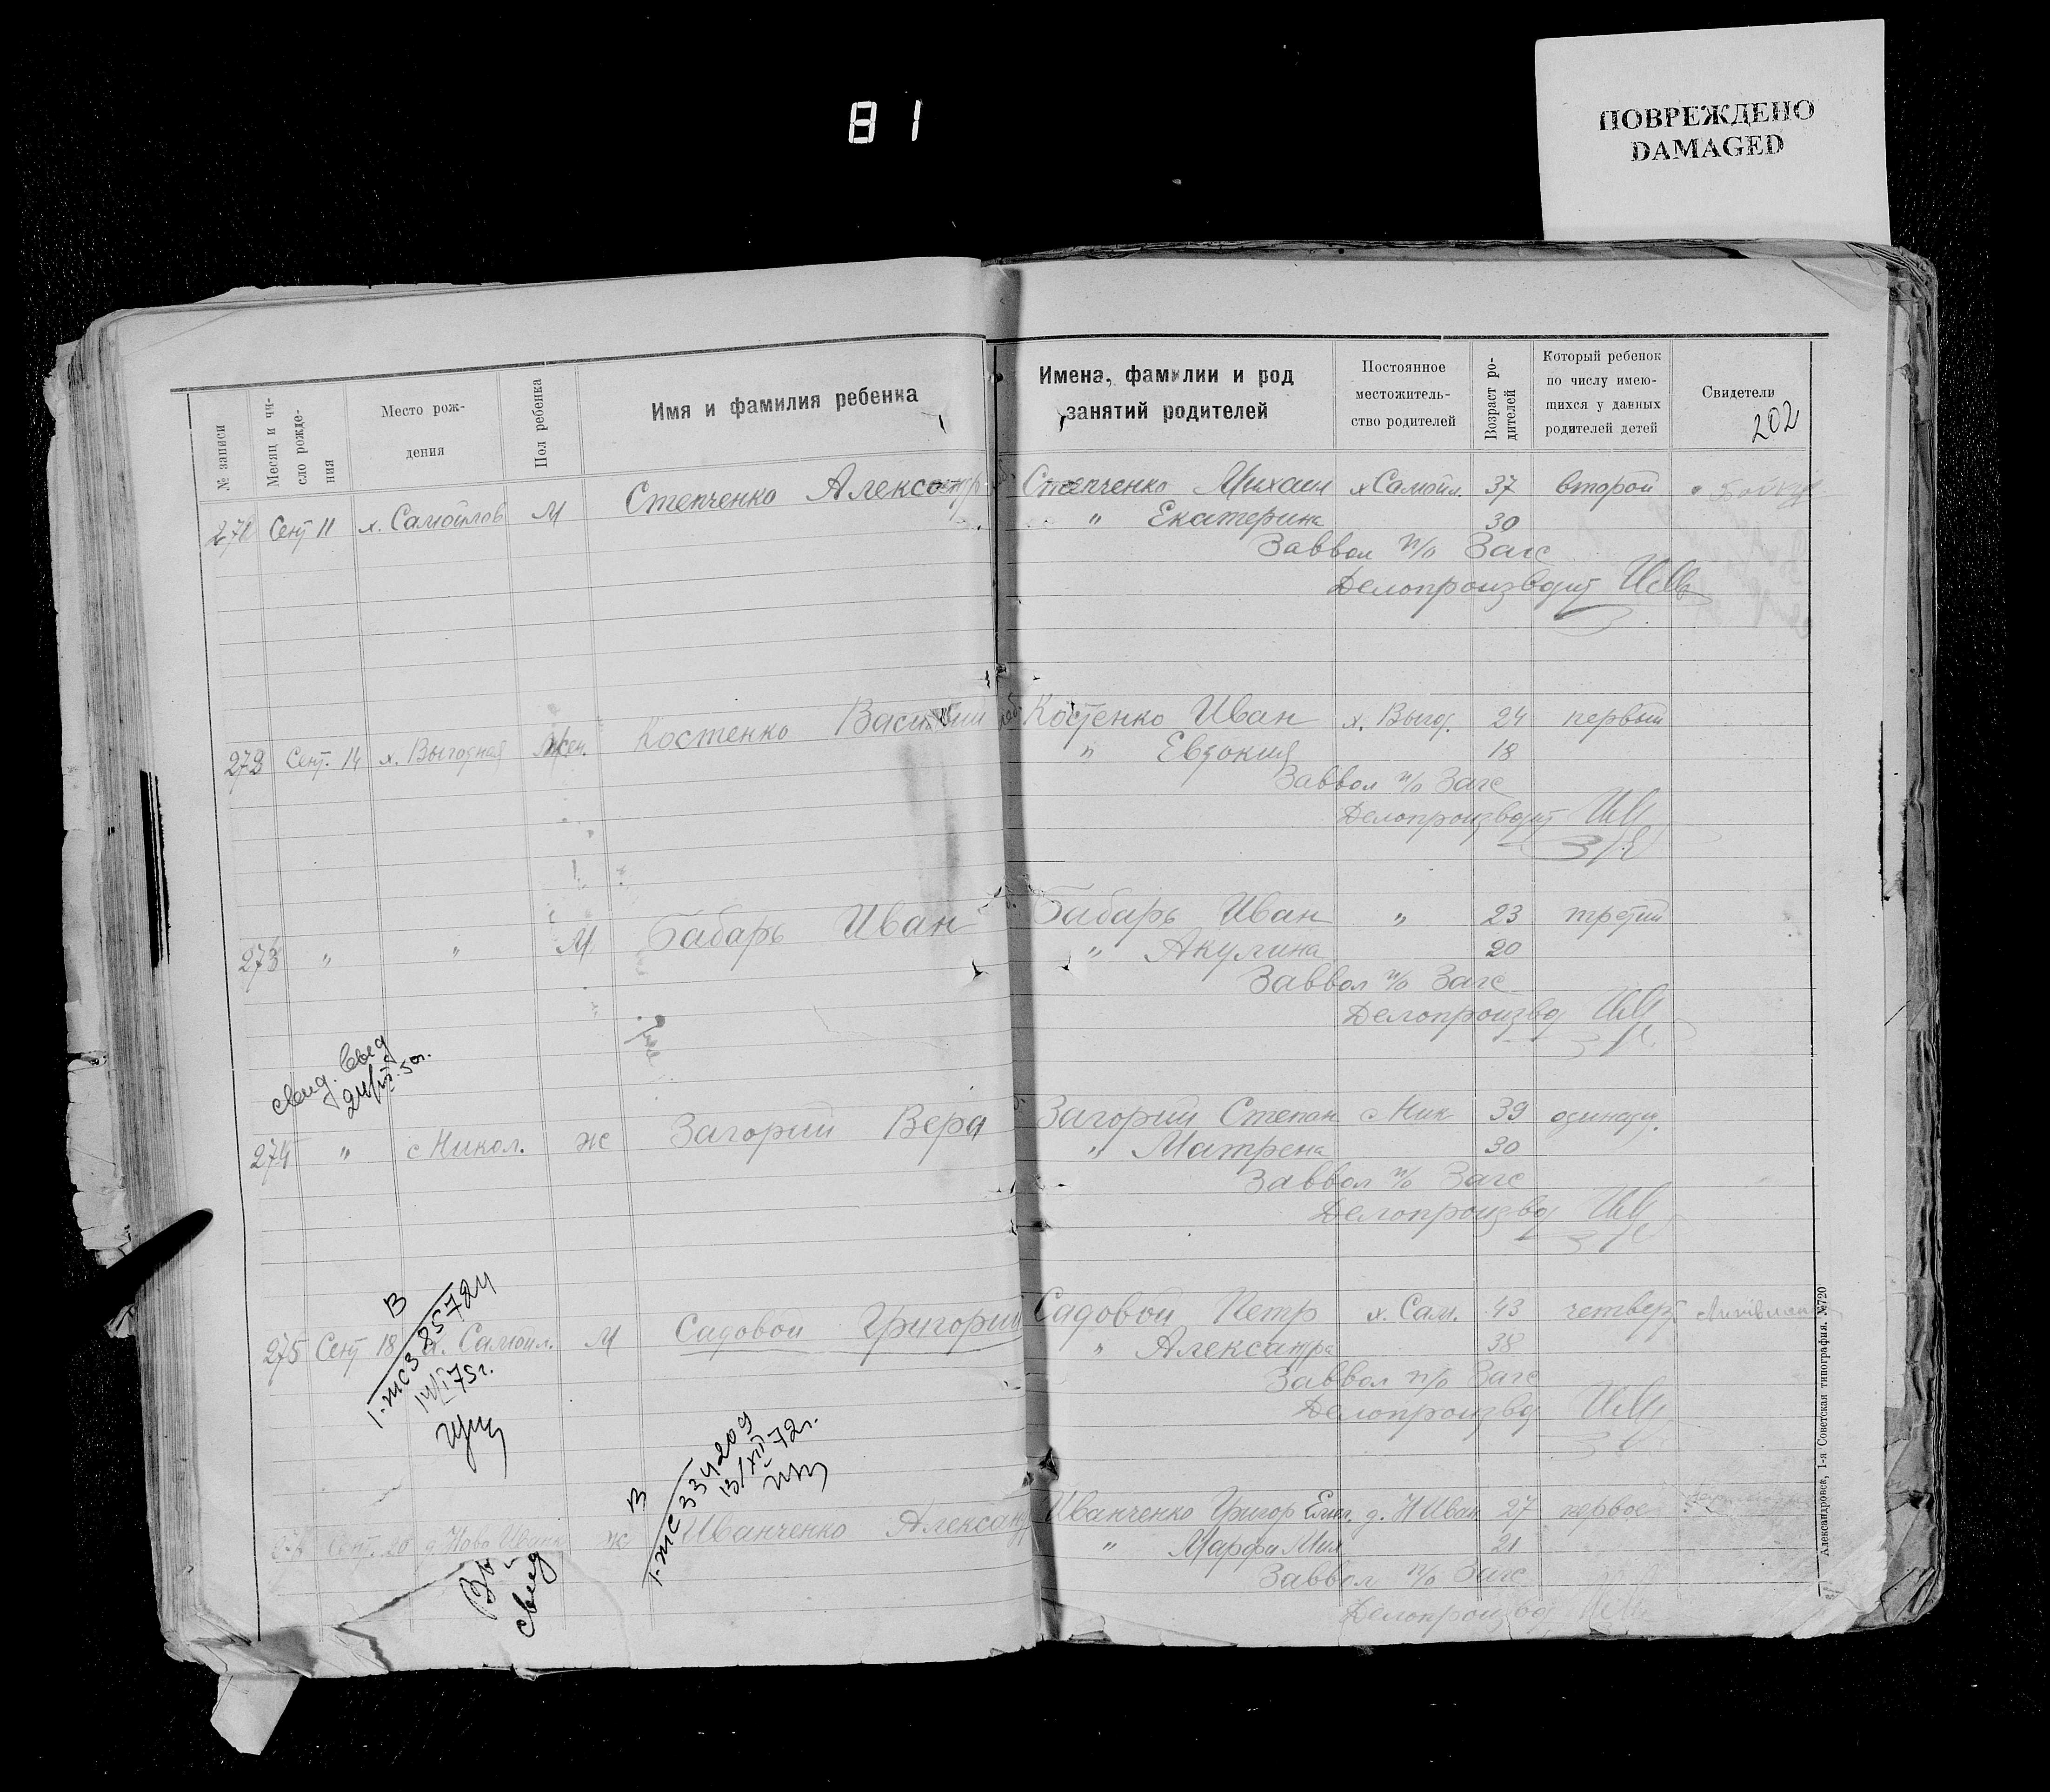 81
ПОВРЕЖДЕНО
DAMAGED
№ записи
Месяц и чи-
сло рожде-
ния
Место рож-
дения
Пол ребенка
Имя и фамилия ребенка
Имена, фамилии и род
занятий родителей
Постоянное
местожитель-
ство родителей
Возраст ро-
дителей
Который ребенок
по числу имею-
щихся у данных
родителей детей
Свидетели
202
271 Сент 11 х. Самойлов М Степченко Александр Степченко Михаил х Самойл. 37 второй
" Екатерина 30
Заввол п/о Загс
Делопроизводит
272 Сент. 14 х. Выгодная Жен. Костенко Василий Костенко Иван х. Выгод. 24 первый
" Евдокия 18
Заввол п/о Загс
Делопроизводит
273 " " М Бабарь Иван Бабарь Иван " 23 третий
" Акулина 20
Заввол п/о Загс
Делопроизвод
свид.
274 " с Никол. ж Загорий Вера Загорий Степан с Ник 39 одинадц.
" Матрена 30
Заввол п/о Загс
Делопроизвод
В
I-жс 3 85724
14/I 75г.
275 Сент 18 х. Самойл. М Садовой Григорий Садовой Петр х. Сам. 43 четверт
" Александра 38
Заввол п/о Загс
Делопроизвод
В
I-жс 334209
13/XII 72г.
276 Сент. 20 д. Ново Иванк ж Иванченко Александр Иванченко Григор д. Н Иван 27 первое
" Марфа Мих 21
Заввол п/о Загс
Делопроизвод
свид
Александровск, 1-я Советская типография. №720